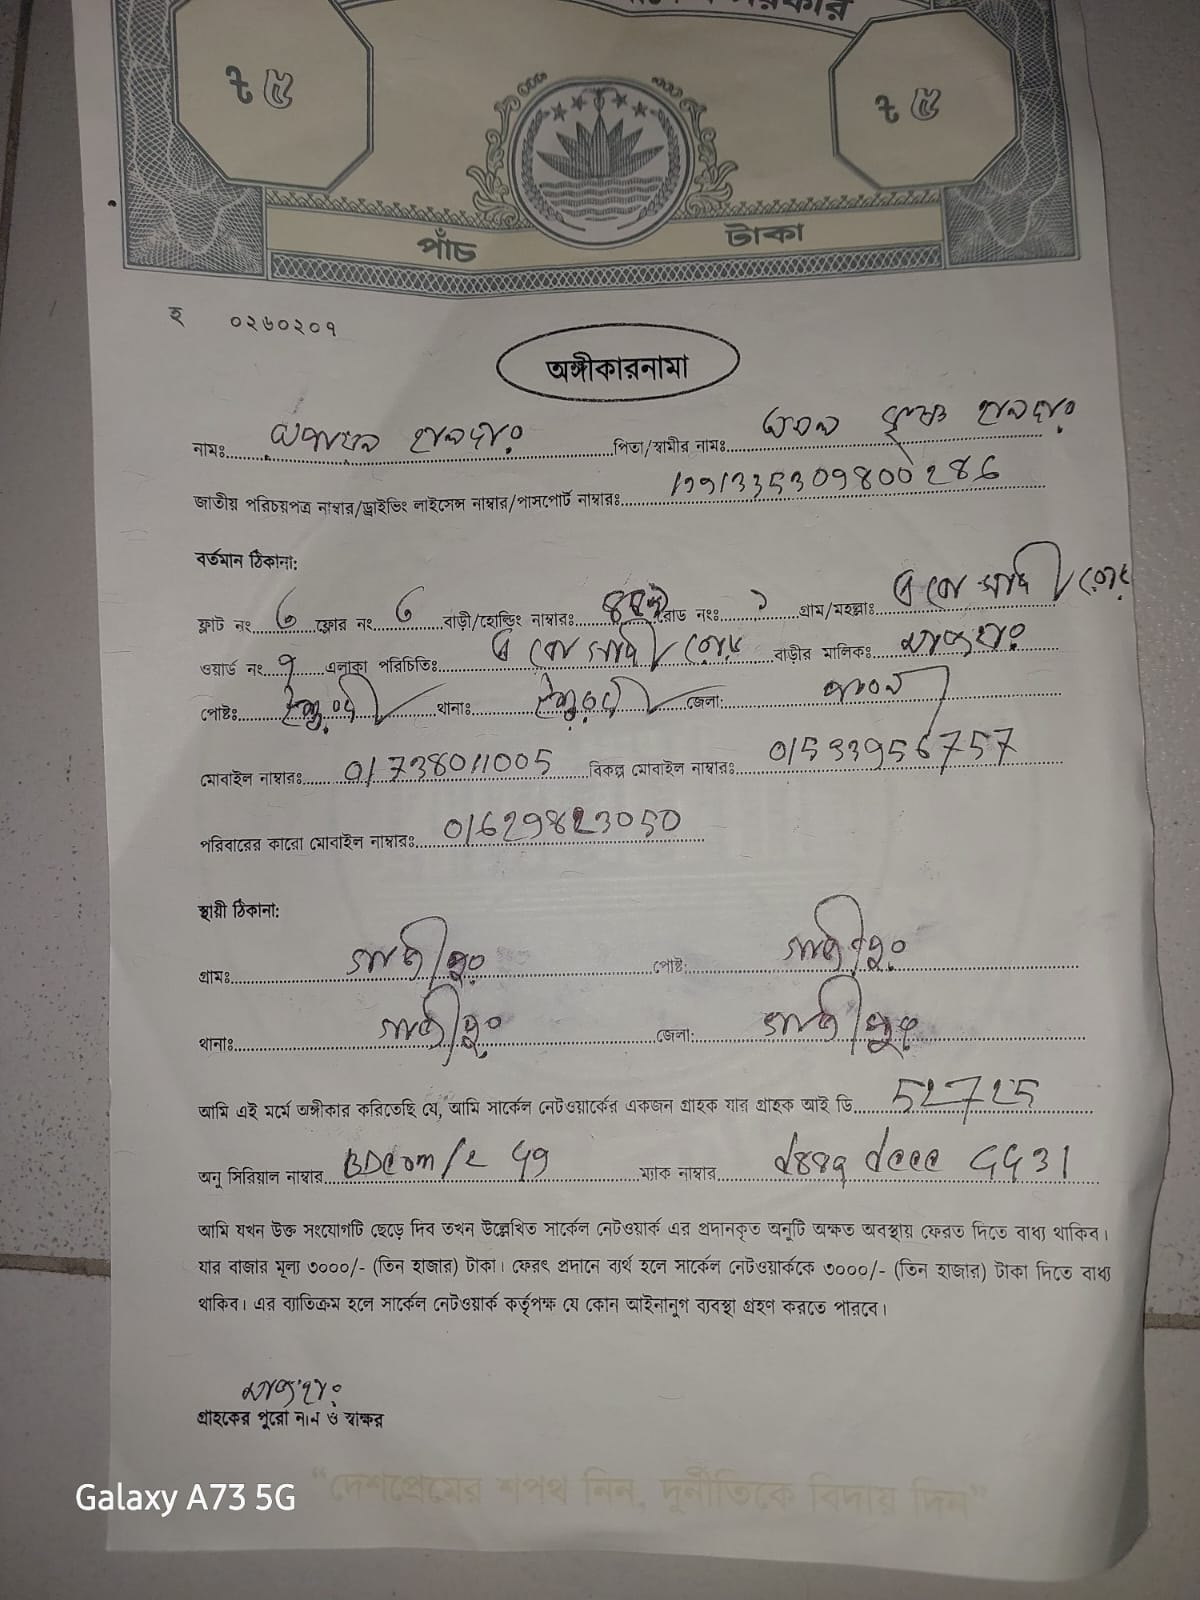 ৳ ৫ ৳ ৫
পাঁচ টাকা
হ ০২৬০২০৭
অঙ্গীকারনামা
নামঃ হালদার পিতা/স্বামীর নামঃ কৃষ্ণ হালদার
জাতীয় পরিচয়পত্র নাম্বার/ড্রাইভিং লাইসেন্স নাম্বার/পাসপোর্ট নাম্বারঃ
বর্তমান ঠিকানা:
ফ্লাট নং ফ্লোর নং বাড়ী/হোল্ডিং নাম্বারঃ রোড নংঃ ১ গ্রাম/মহল্লাঃ রোড
ওয়ার্ড নং ৭ এলাকা পরিচিতিঃ রোড বাড়ীর মালিকঃ
পোষ্টঃ ঈশ্বরদী থানাঃ ঈশ্বরদী জেলা: পাবনা
মোবাইল নাম্বারঃ 01738011005 বিকল্প মোবাইল নাম্বারঃ 01533956757
পরিবারের কারো মোবাইল নাম্বারঃ 01629823050
স্থায়ী ঠিকানা:
গ্রামঃ গাজীপুর পোষ্ট: গাজীপুর
থানাঃ গাজীপুর জেলা: গাজীপুর
আমি এই মর্মে অঙ্গীকার করিতেছি যে, আমি সার্কেল নেটওয়ার্কের একজন গ্রাহক যার গ্রাহক আই ডি 52725
অনু সিরিয়াল নাম্বার BDcom ম্যাক নাম্বার
আমি যখন উক্ত সংযোগটি ছেড়ে দিব তখন উল্লেখিত সার্কেল নেটওয়ার্ক এর প্রদানকৃত অনুটি অক্ষত অবস্থায় ফেরত দিতে বাধ্য থাকিব।
যার বাজার মূল্য ৩০০০/- (তিন হাজার) টাকা। ফেরৎ প্রদানে ব্যর্থ হলে সার্কেল নেটওয়ার্ককে ৩০০০/- (তিন হাজার) টাকা দিতে বাধ্য
থাকিব। এর ব্যতিক্রম হলে সার্কেল নেটওয়ার্ক কর্তৃপক্ষ যে কোন আইনানুগ ব্যবস্থা গ্রহণ করতে পারবে।
গ্রাহকের পুরো নাম ও স্বাক্ষর
"দেশপ্রেমের শপথ নিন, দুর্নীতিকে বিদায় দিন"
Galaxy A73 5G